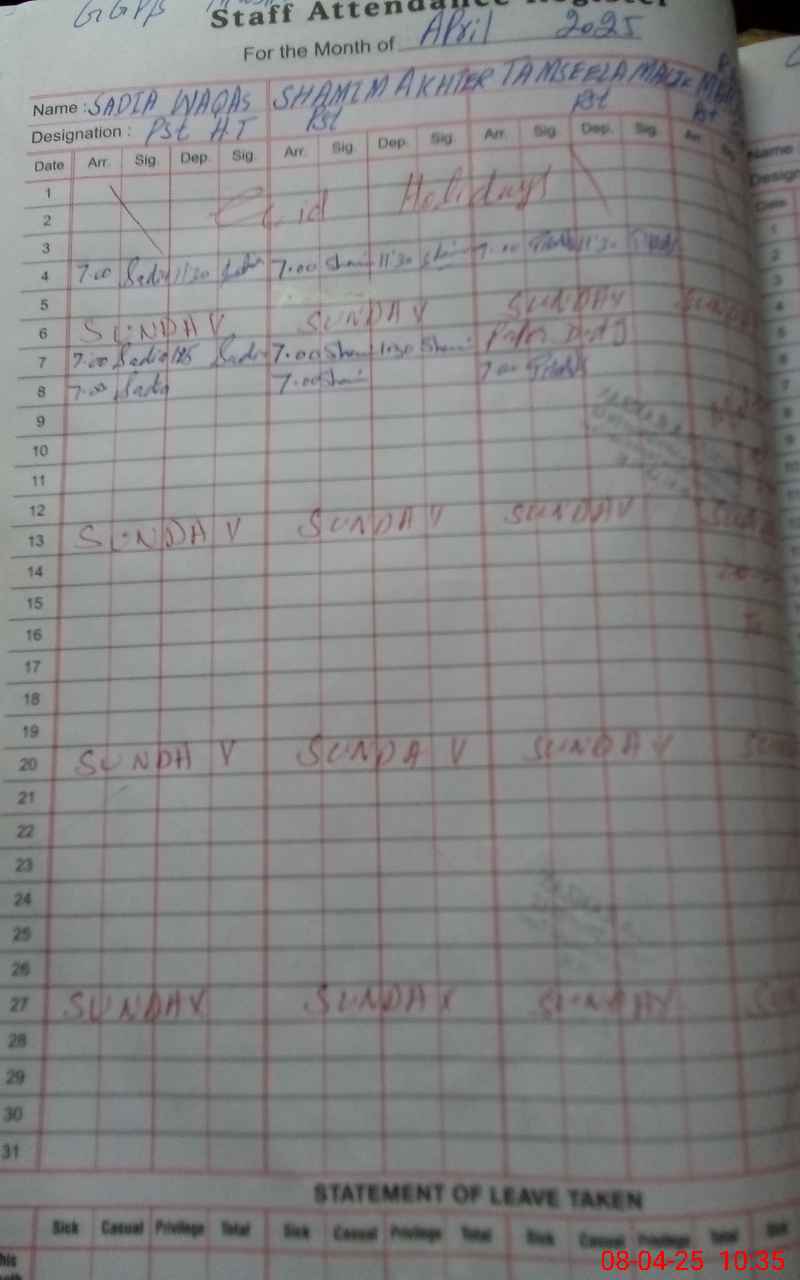 GGPS
Staff Attendance Register
For the Month of April 2025
Name : SADIA WAQAS SHAMIM AKHTER TAMSEELA
Designation : Pst H T Pst Pst Pst
Date Arr. Sig. Dep. Sig. Arr. Sig. Dep. Sig. Arr. Sig. Dep. Sig. Arr. Sig.
1
2 Eid Holidays
3
4 7.00 Sadia 11:30 7.00 Sham 11:30 7:00 11:30
5
6 SUNDAY SUNDAY SUNDAY
7 7.00 Sadia Sadia 7.00 Sham Sham
8 7.00 Sadia 7.00 Sham 7.00
9
10
11
12
13 SUNDAY SUNDAY SUNDAY
14
15
16
17
18
19
20 SUNDAY SUNDAY SUNDAY
21
22
23
24
25
26
27 SUNDAY SUNDAY SUNDAY
28
29
30
31
STATEMENT OF LEAVE TAKEN
Sick Casual Privilege Total Sick Casual Privilege Total Sick Casual Privilege Total Sick
08-04-25 10:35